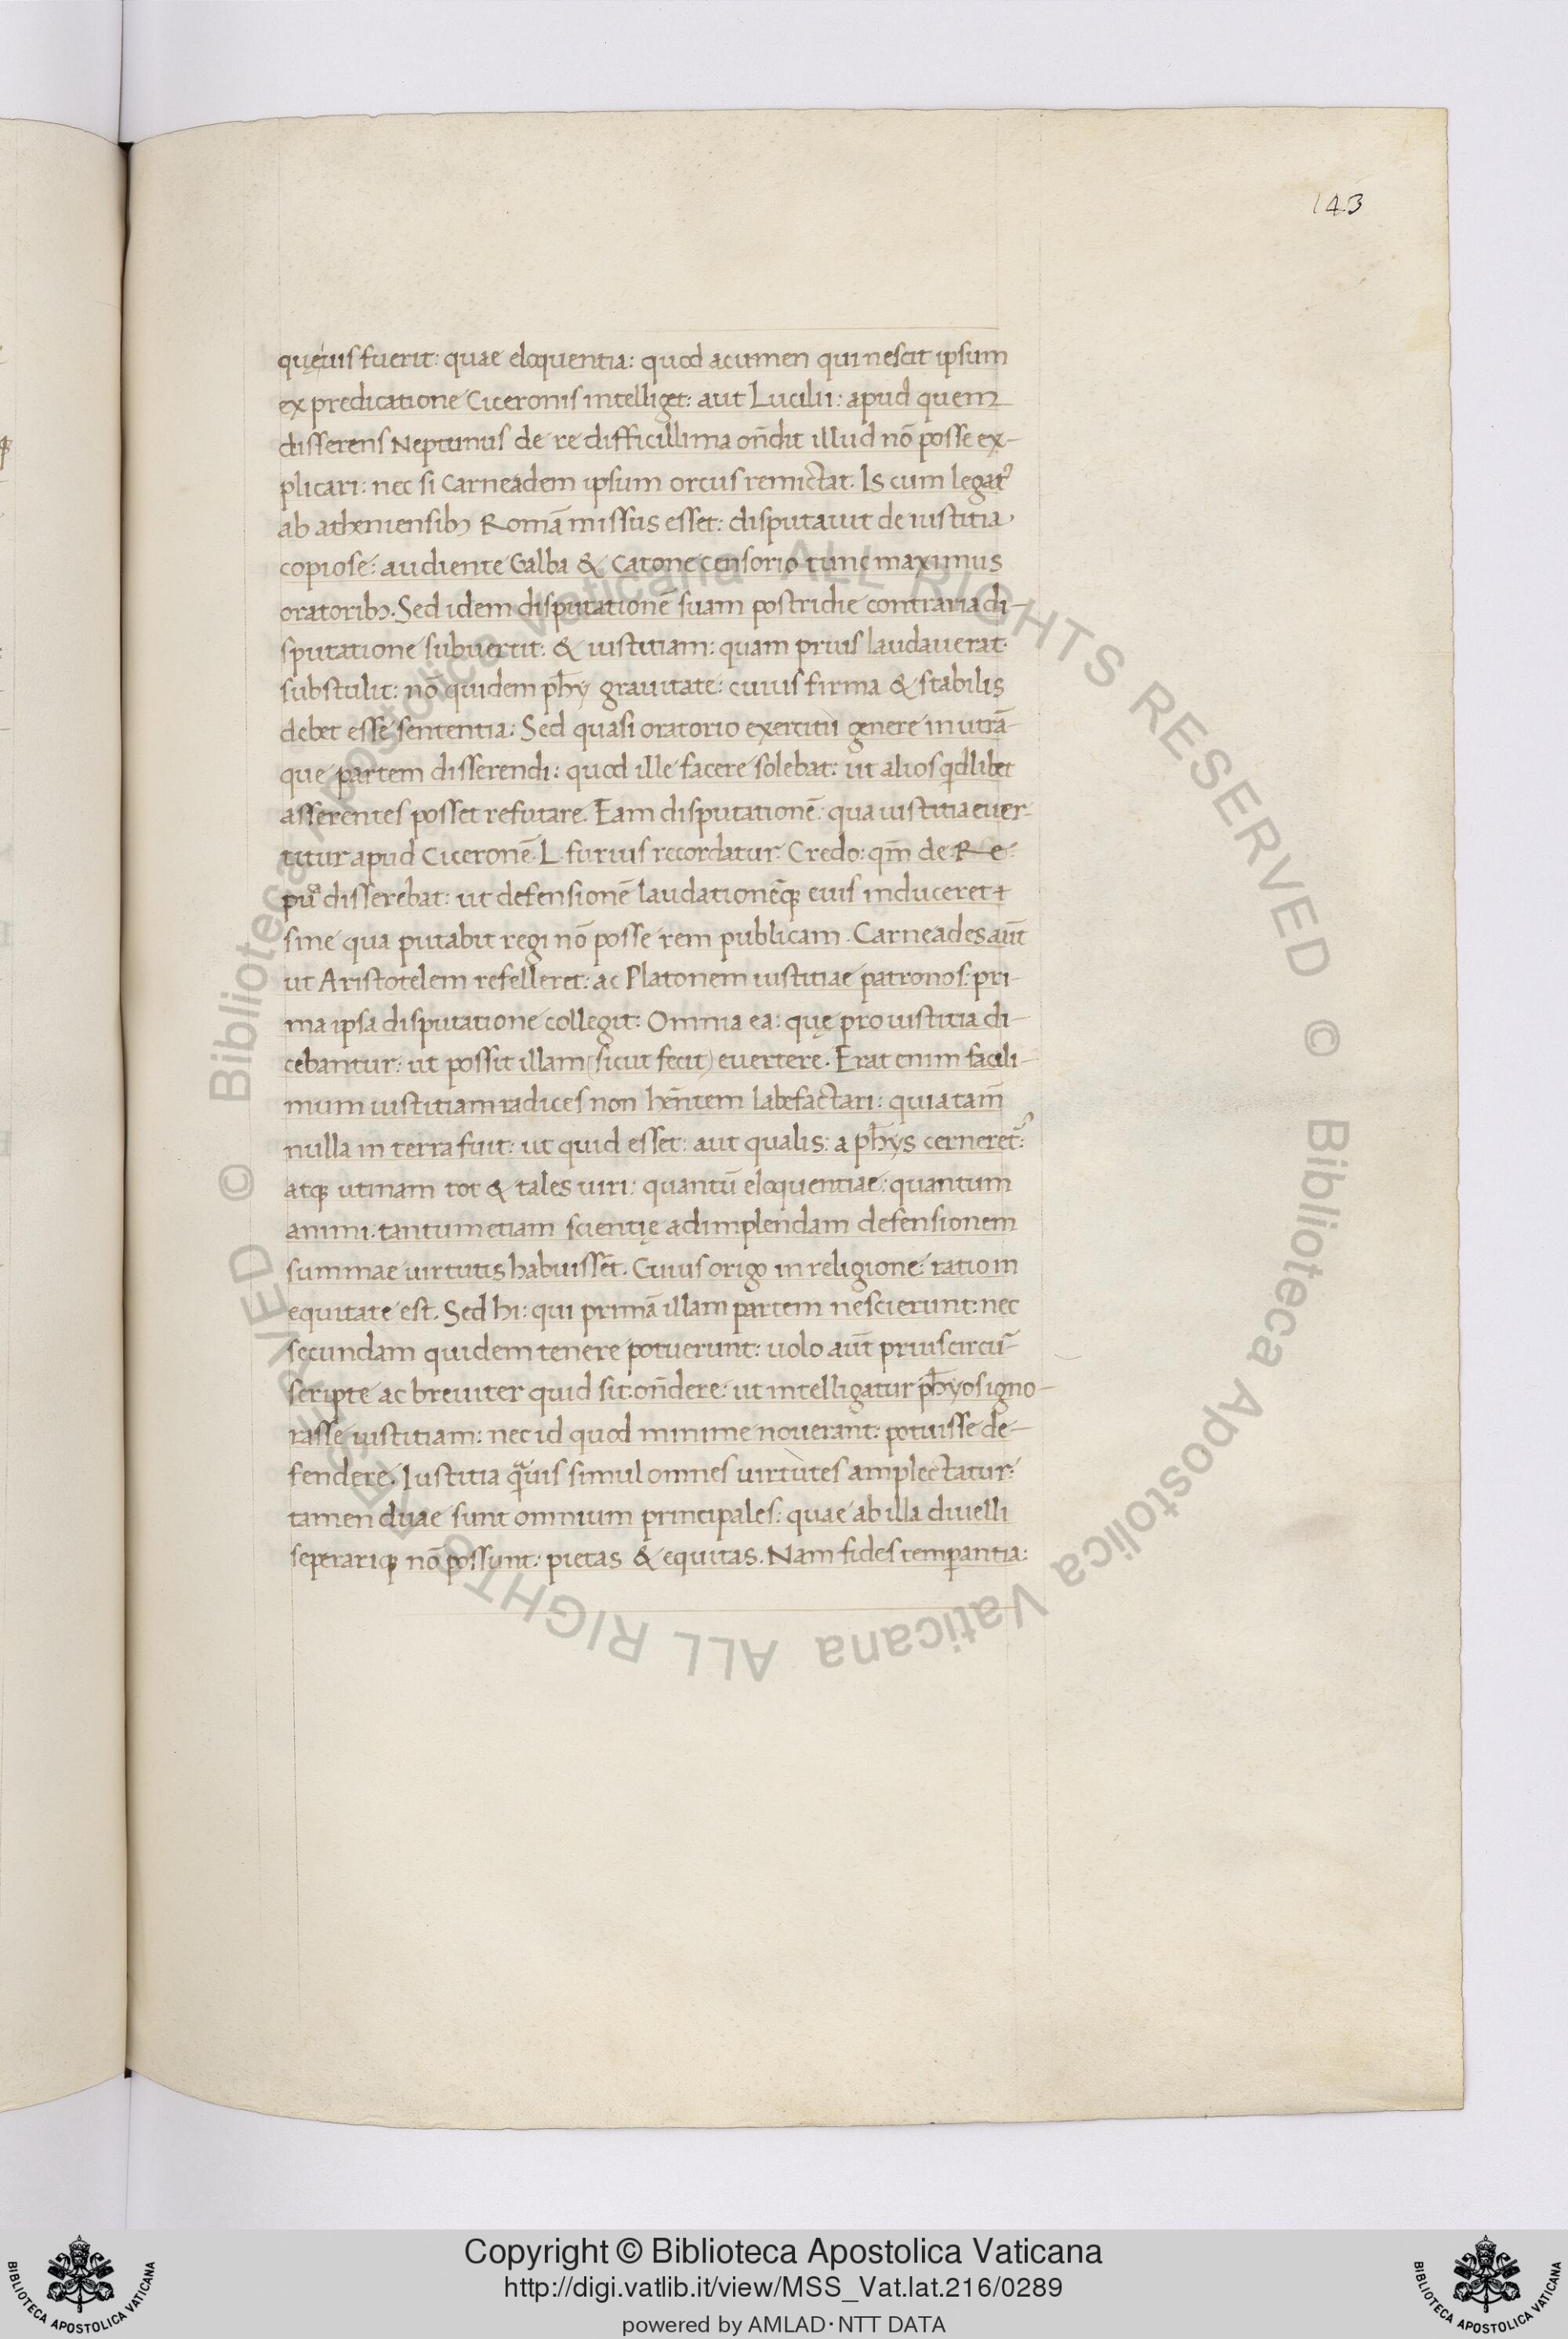 143
quęuis fuerit: quae eloquentia: quod acumen qui nescit ipsum
ex predicatione Ciceronis intelliget: aut Lucilii: apud quem
disserens Neptunus de re difficillima on̄dit illud nō posse ex-
plicari: nec si Carneadem ipsum orcus remictat. Is cum legat᷒
ab atheniensibꝫ Romā missus esset: disputauit de iustitia
copiose: audiente Galba & Catone censorio tunc maximus
oratoribꝫ. Sed idem disputationē suam postridie contraria di-
sputatione subuertit: & iustitiam: quam prius laudauerat.
substulit: nō quidem pħy grauitate: cuius firma & stabilis
debet esse sententia: Sed quasi oratorio exertitii genere in utrā-
que partem disserendi: quod ille facere solebat: ut alios qdlibet
asserentes posset refutare. Eam disputationē: qua iustitia euer-
titur apud Ciceronē. L. furius recordatur. Credo: qm̄ de Re
puͣ disserebat: ut defensionē laudationēqꝫ eius induceret
sine qua putabit regi nō posse rem publicam. Carneades aūt
ut Aristotelem refelleret: ac Platonem iustitiae patronos: pri-
ma ipsa disputatione collegit: Omnia ea: quę pro iustitia di-
cebantur: ut possit illam (sicut fecit) euertere. Erat enim facili-
mum iustitiam radices non hēntem labefactari: quia tam̄
nulla in terra fuit: ut quid esset: aut qualis: a pħys cerneret᷒:
atqꝫ utinam tot & tales uiri: quantū eloquentiae: quantum
animi. tantum etiam scientię ad implendam defensionem
summae uirtutis habuissēt. Cuius origo in religione: ratio in
equitate est. Sed hi: qui primā illam partem nescierunt: nec
secundam quidem tenere potuerunt: uolo aūt prius circū-
scripte ac breuiter quid sit: on̄dere: ut intelligatur pħyos igno-
rasse iustitiam: nec id quod minime nouerant: potuisse de-
fendere. Iustitia qͣuis simul omnes uirtutes amplectatur:
tamen duae sunt omnium principales: quae ab illa diuelli
seperariqꝫ nō possunt: pietas & equitas. Nam fides temꝑantia:
Biblioteca Apostolica Vaticana ALL RIGHTS RESERVED ©
Biblioteca Apostolica Vaticana ALL RIGHTS RESERVED ©
Copyright © Biblioteca Apostolica Vaticana
http://digi.vatlib.it/view/MSS_Vat.lat.216/0289
powered by AMLAD·NTT DATA
BIBLIOTECA APOSTOLICA VATICANA
BIBLIOTECA APOSTOLICA VATICANA